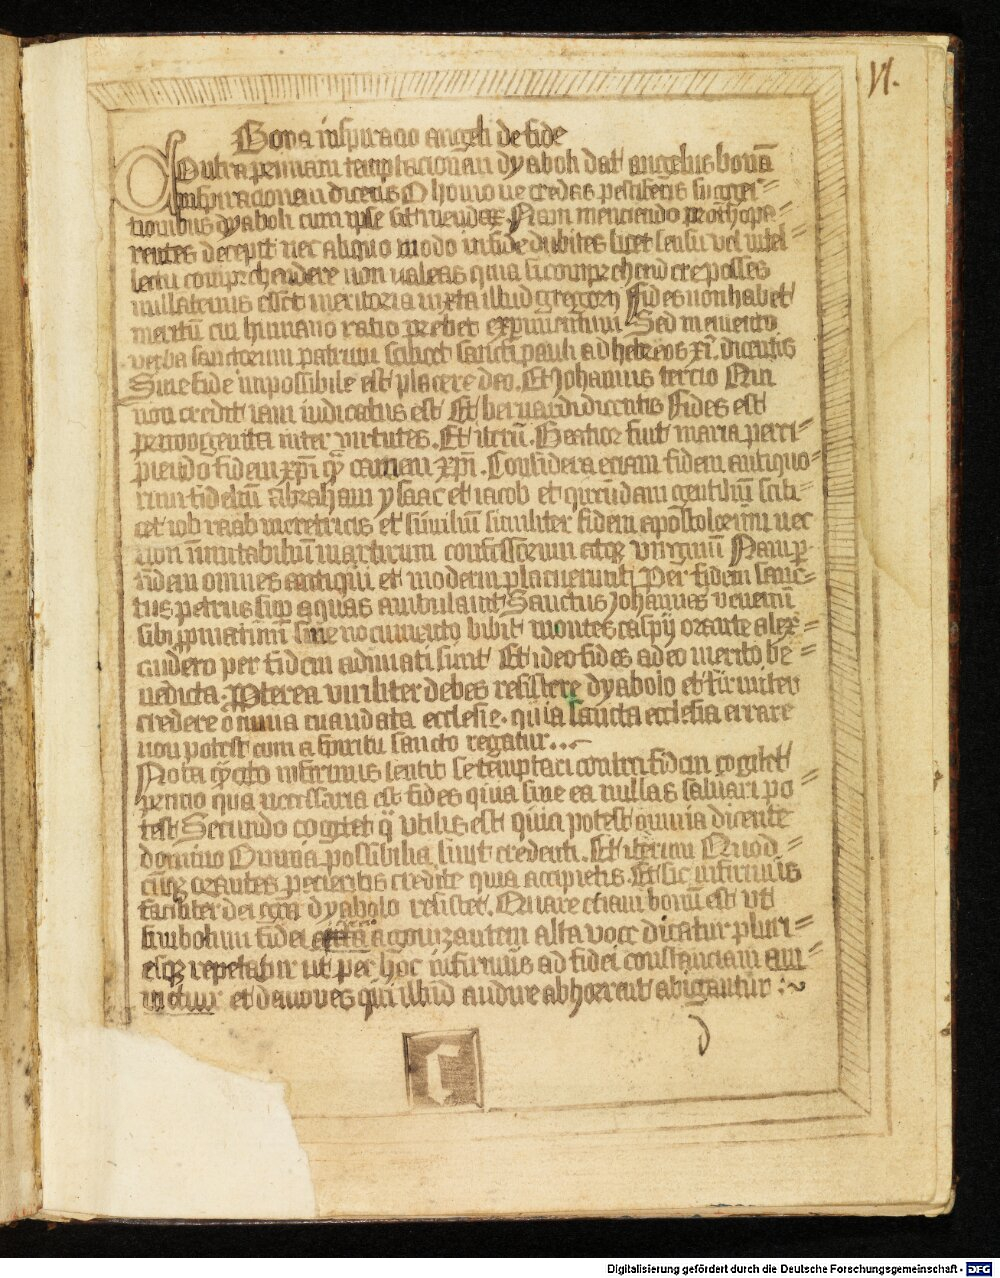 VI.
Bona inspiracio angeli de fide
Contra primam temptacionem dyaboli dat angelus bonā
inspiracionem dicens O homo ne credas pestiferis sugges=
tionibus dyaboli cum ipse sit mendax Nam menciendo prothopa=
rentes decepit nec aliquo modo in fide dubites licet sensu vel intel=
lectu comprehendere non valeas quia si comprehendere posses
nullatenus esset meritoria iuxta illud gregorii Fides non habet
meritū cui humano ratio prebet experimentum Sed memento
verba sanctorum patrum scilicet sancti pauli ad hebreos xi. dicentis
Sine fide impossibile est placere deo. Et Johannis tercio Qui
non credit iam iudicatus est Et bernardi dicentis Fides est
primogenita inter virtutes. Et iterū. Beatior fuit maria perci=
piendo fidem xp̄i q̄ȝ carnem xp̄i. Considera eciam fidem antiquo=
rum fideliū abraham ysaac et iacob et quorūdam gentiliū scili=
cet iob raab meretricis et similiū similiter fidem apostolorum nec
non īmutabiliū martirum confessorum atqȝ virginū Nam ꝑ
fidem omnes antiqui et moderni placuerunt Per fidem sanc=
tus petrus sup̄ aquas ambulavit Sanctus Johannes venenū
sibi ꝓpinatum sine nocumento bibit montes caspij orante alex=
andero per fidem adunati sunt Et ideo fides a deo merito be=
nedicta. Pterea viriliter debes resistere dyabolo et firmiter
credere omnia mandata ecclesie. quia sancta ecclesia errare
non potest cum a spiritu sancto regatur...
Nota q̄ cito infirmus sentit se temptari contra fidem cogitet
primo qua necessaria est fides quia sine ea nullas salvari po=
test Secundo cogitet q̄ȝ vtilis est quia potest omnia dicente
domino Omnia possibilia sunt credenti. Et iterum Quod=
cūqȝ orantes petieritis credite quia accipietis. Et sic infirmus
faciliter dei gr̄a dyabolo resistet. Quare etiam bonū est vt
simbolum fidei circa agonizantem alta voce dicatur pluri=
esqȝ repetatur ut per hoc infirmus ad fidei constanciam ani=
metur et demones qui illud audire abhorrent abigantur :~
C